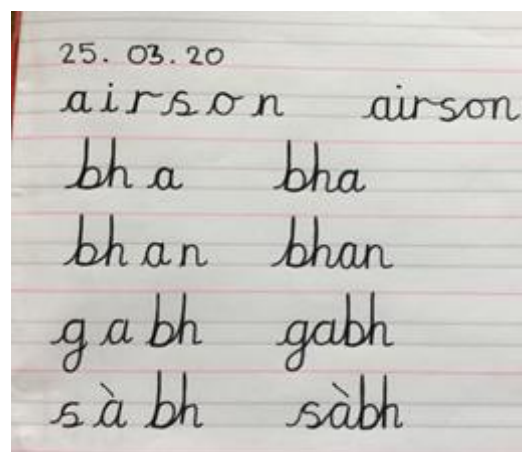 25. 03. 20
a i r s o n airson
bh a bha
bh a n bhan
g a bh gabh
s à bh sàbh